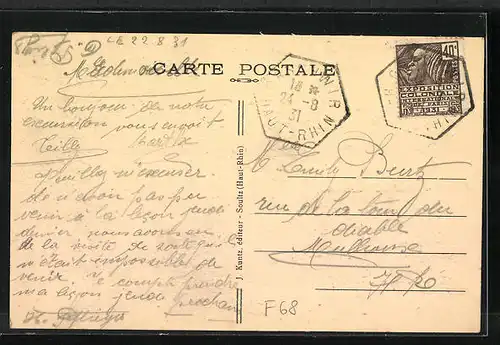 LE 22 8 31
CARTE POSTALE
Un bonjour de notre
excursion vous envoit
Veuillez m'excuser
de n'avoir pas pu
venir à la leçon jeudi
dernier nous avons eu
de la visite de sorte qu'il
m'était impossible de
venir. Je compte prendre
ma leçon jeudi prochain
J. Kuntz, éditeur - Soultz (Haut-Rhin)
18
24-8
31
HAUT-RHIN
40c
POSTES
EXPOSITION
COLONIALE
INTERNATIONALE
PARIS
Emile
rue de la tour du
diable
Mulhouse
F68